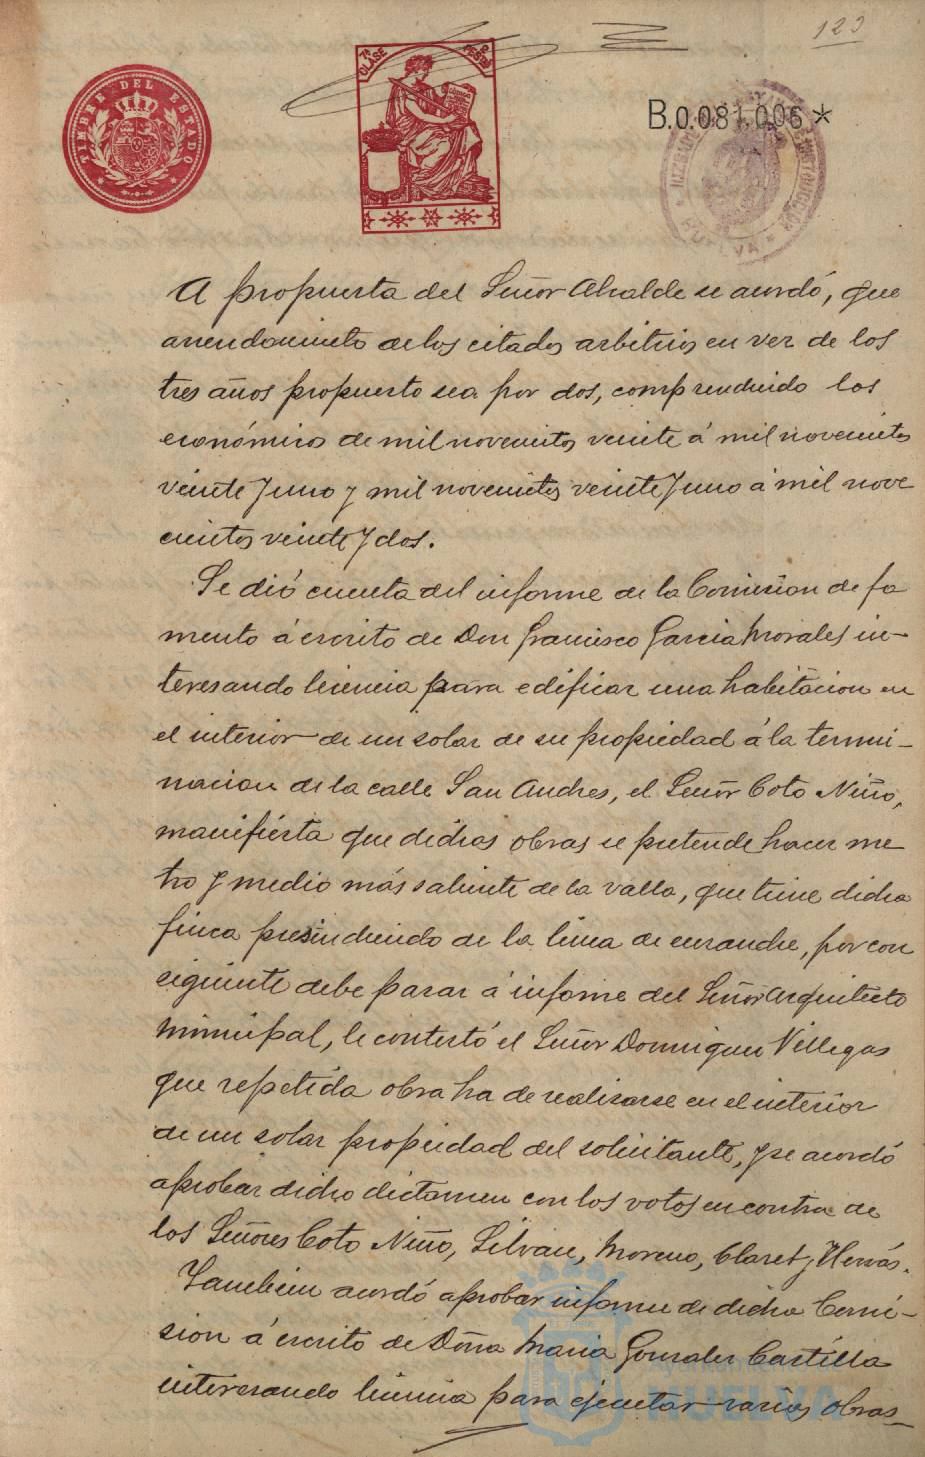 123
TIMBRE DEL ESTADO
7ª CLASE
PESETAS
B.0.081.006*
HUELVA
A propuesta del Señor Alcalde se acordó, que
arrendamiento de los citados arbitrios en vez de los
tres años propuesto sea por dos, comprendiendo los
económicos de mil novecientos veinte á mil novecientos
veinte y uno y mil novecientos veinte y uno á mil nove
cientos veinte y dos.
Se dió cuenta del informe de la Comision de fo
mento á escrito de Don Francisco Garcia Morales in-
teresando licencia para edificar una habitacion en
el interior de un solar de su propiedad á la termi-
nacion de la calle San Andres, el Señor Coto Niño,
manifiesta que dichas obras se pretende hacer me
tro y medio más saliente de la valla, que tiene dicha
finca presindiendo de la linea de ensanche, por con
siguiente debe pasar á informe del Señor Arquitecto
Municipal, le contestó el Señor Dominguez Villegas
que repetida obra ha de realizarse en el interior
de un solar propiedad del solicitante, y se acordó
aprobar dicho dictamen con los votos en contra de
los Señores Coto Niño, Silvan, Moreno, Claret y Hervás.
Tambien acordó aprobar informe de dicha Comi-
sion á escrito de Doña Maria Gonzalez Castilla
interesando licencia para ejecutar varias obras
HUELVA